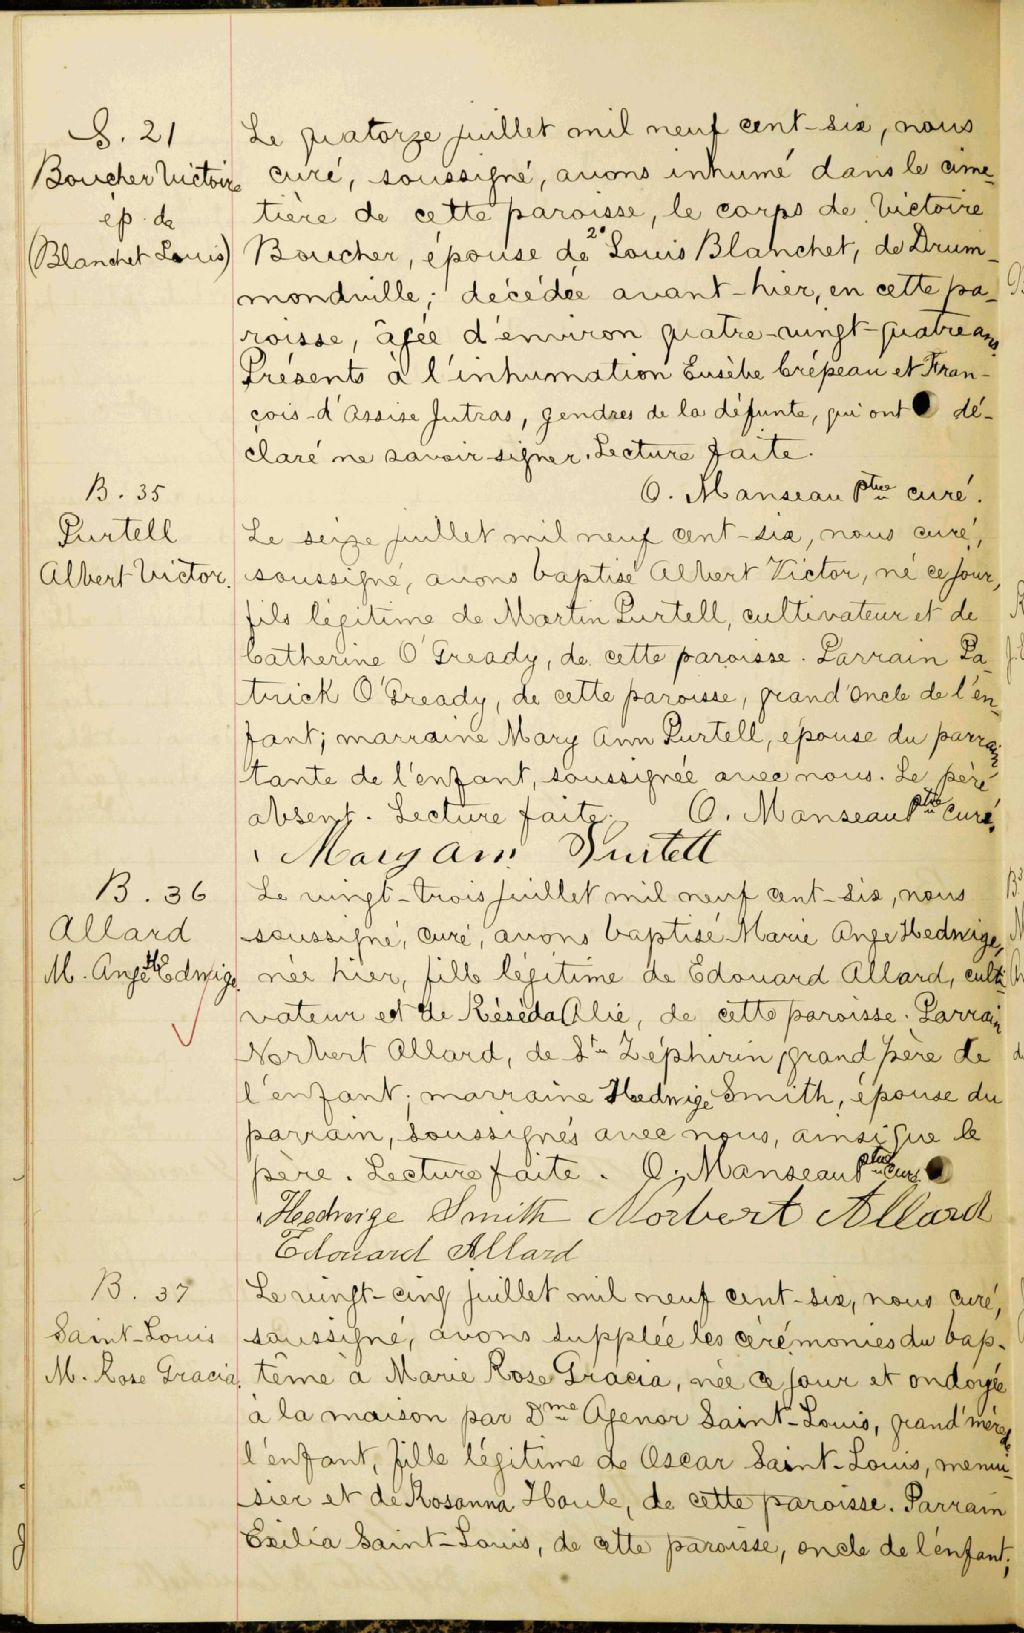 S. 21
Boucher Victoire
ép. de
(Blanchet Louis)
Le quatorze juillet mil neuf cent-six, nous
curé, soussigné, avons inhumé dans le cime-
tière de cette paroisse, le corps de Victoire
Boucher, épouse de 2° Louis Blanchet, de Drum-
mondville; décédée avant-hier, en cette pa-
roisse, âgée d'environ quatre-vingt-quatre ans.
Présents à l'inhumation Eusèbe Crépeau et Fran-
çois-d'Assise Jutras, gendres de la défunte, qui ont dé-
claré ne savoir signer. Lecture faite.
O. Manseau Ptre curé.
B. 35
Purtell
Albert Victor.
Le seize juillet mil neuf cent-six, nous curé,
soussigné, avons baptisé Albert Victor, né ce jour,
fils légitime de Martin Purtell, cultivateur et de
Catherine O'Gready, de cette paroisse. Parrain Pa-
trick O'Gready, de cette paroisse, grand'oncle de l'en-
fant; marraine Mary Ann Purtell, épouse du parrain
tante de l'enfant, soussignée avec nous. Le père
absent. Lecture faite. O. Manseau Ptre curé.
Mary Ann Purtell
B. 36
Allard
M. Ange Hedwige
Le vingt-trois juillet mil neuf cent-six, nous
soussigné, curé, avons baptisé Marie Ange Hedwige,
née hier, fille légitime de Edouard Allard, culti-
vateur et de Réséda Alie, de cette paroisse. Parrain
Norbert Allard, de St Zéphirin, grand père de
l'enfant; marraine Hedwige Smith, épouse du
parrain, soussignés avec nous, ainsi que le
père. Lecture faite. O. Manseau Ptre curé
Hedwige Smith Norbert Allard
Edouard Allard
B. 37
Saint-Louis
M. Rose Gracia.
Le vingt-cinq juillet mil neuf cent-six, nous curé,
soussigné, avons supplée les cérémonies du bap-
tême à Marie Rose Gracia, née ce jour et ondoyée
à la maison par Dme Agenor Saint-Louis, grand'mère de
l'enfant, fille légitime de Oscar Saint-Louis, menui-
sier et de Rosanna Houle, de cette paroisse. Parrain
Exilia Saint-Louis, de cette paroisse, oncle de l'enfant;